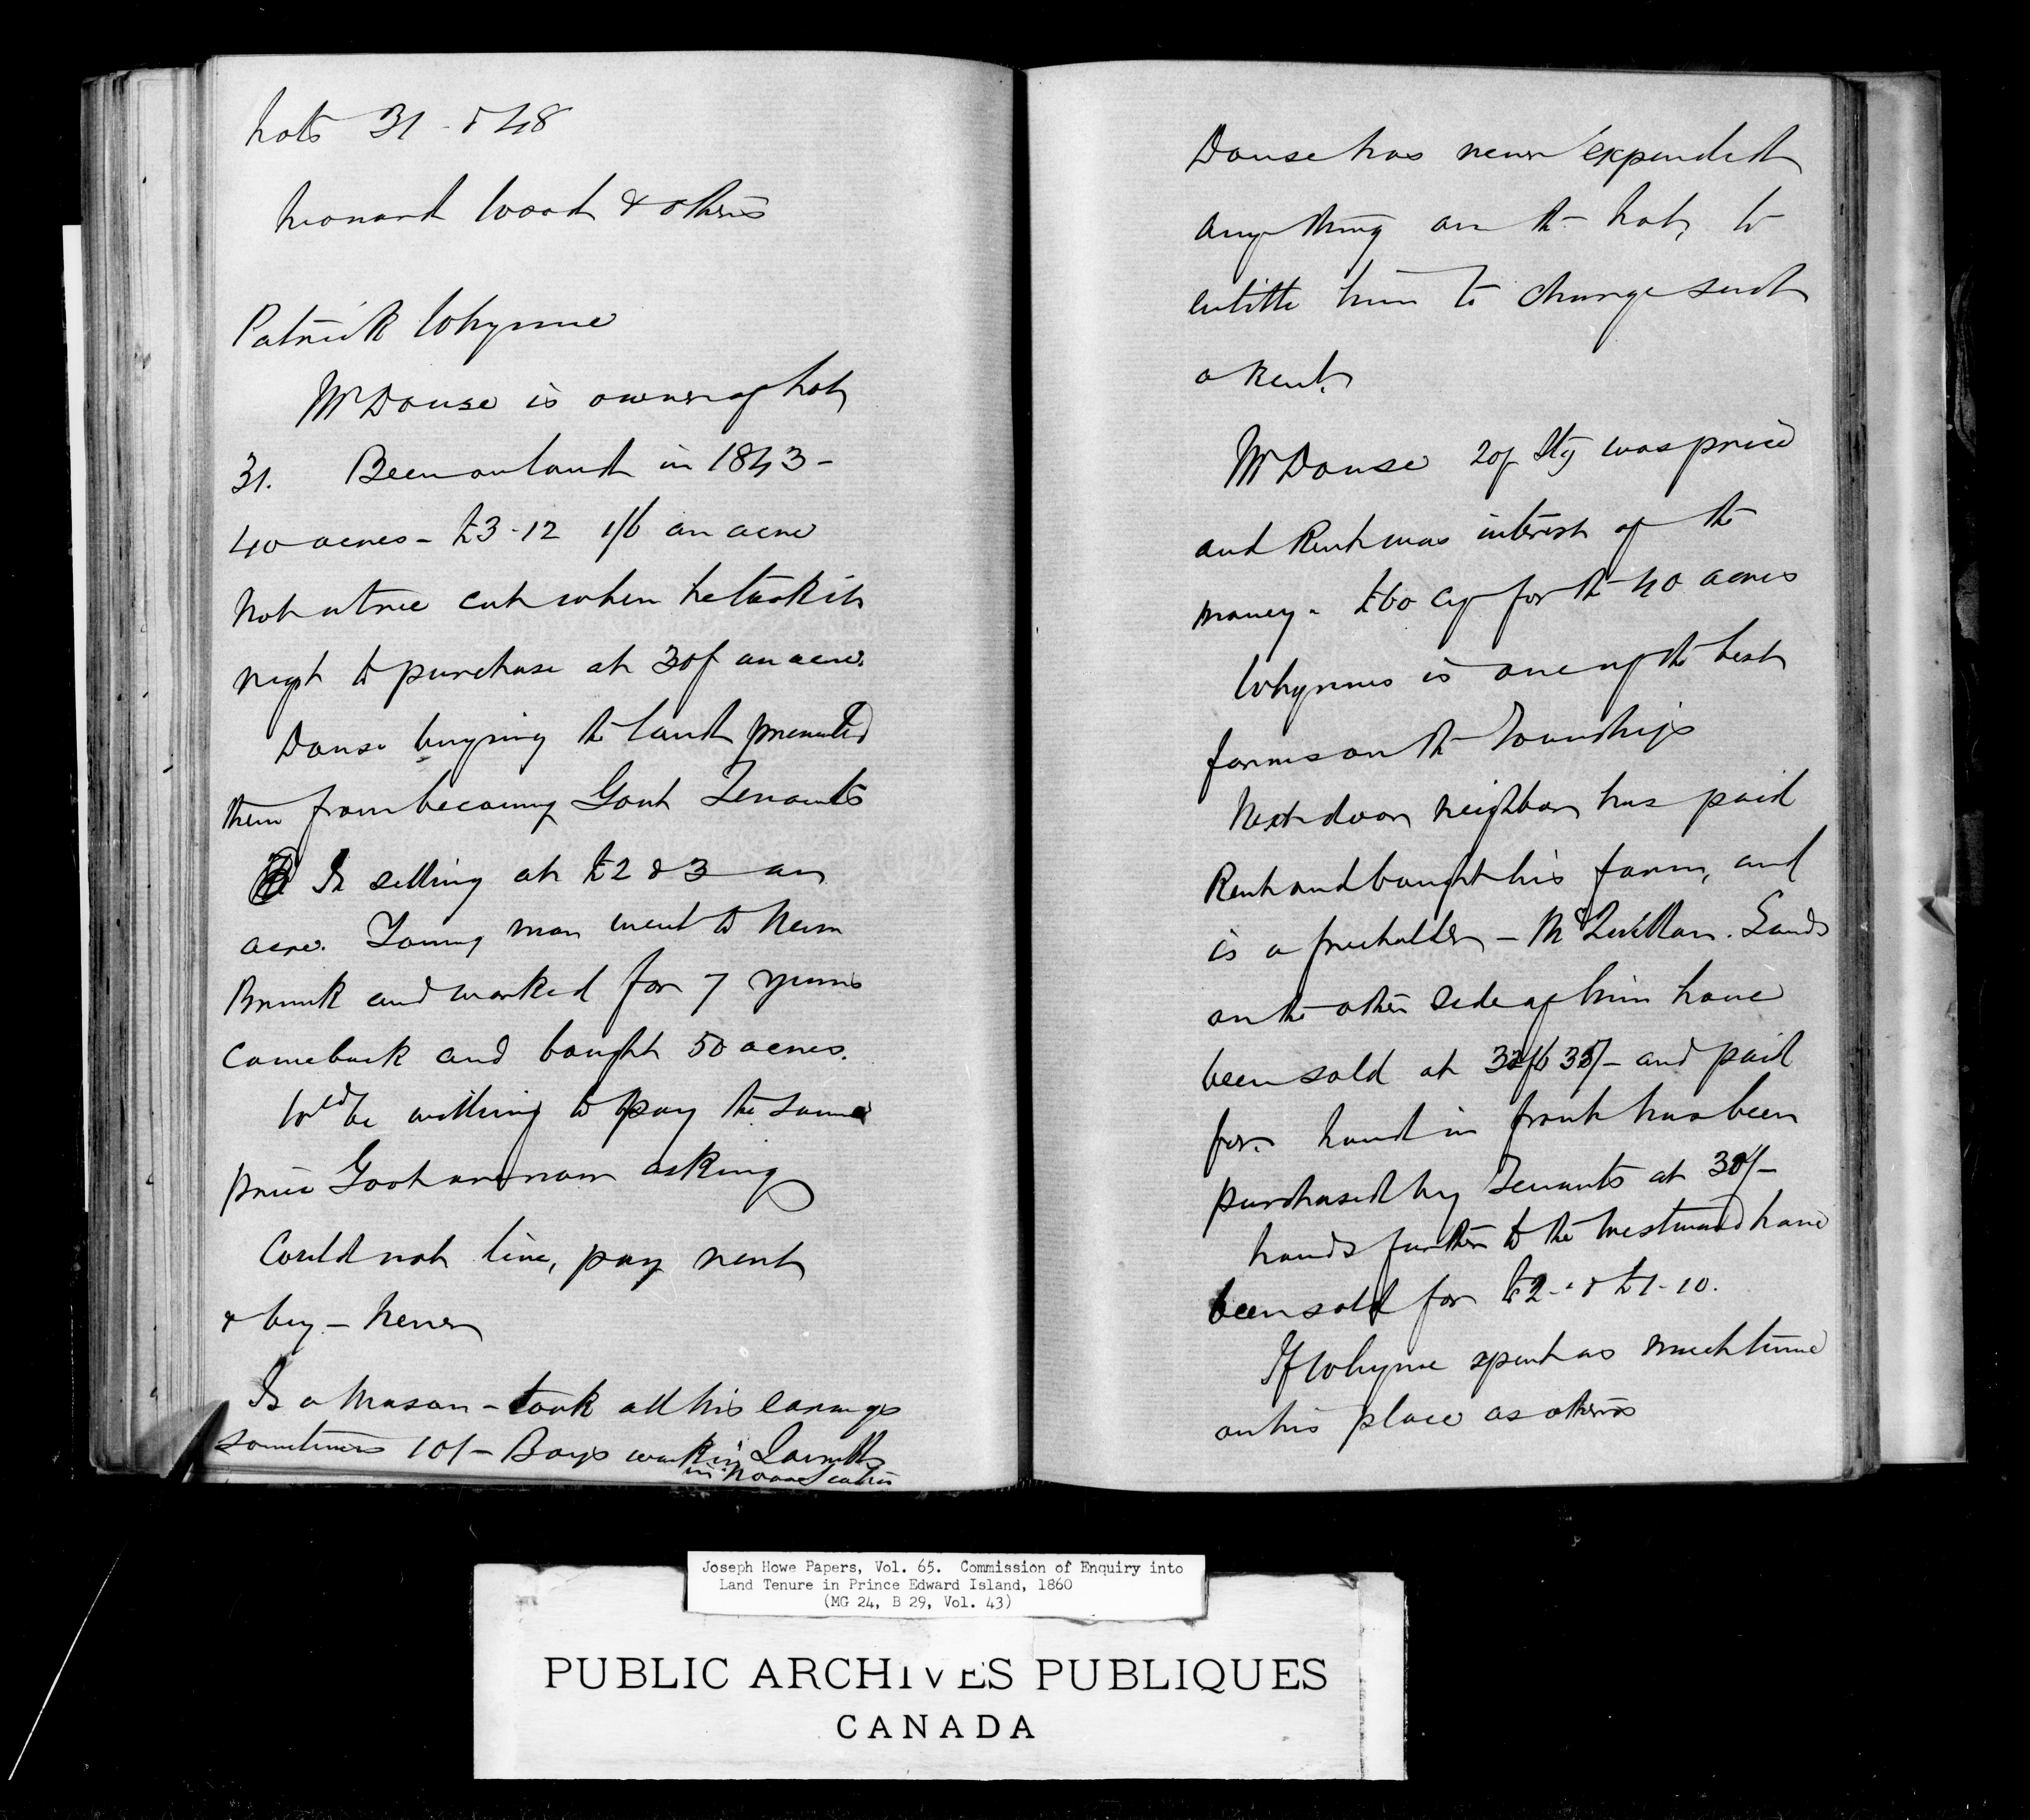 Lots 31 - & 48
Leonard Wood & others
Patrick Whynne
Mr Douse is owner of Lot
31. Been on land in 1843 -
40 acres - £3-12 1/6 an acre
Not a tree cut when he took it
right to purchase at 30/ an acre.
Douse buying the land prevented
them from becoming Govt Tenants
Is selling at £2 & 3 an
acre. Young man went to New
Brunk and worked for 7 years
came back and bought 50 acres.
Wld be willing to pay the same
price Govt are now asking
Could not live, pay rent
& buy - Never
Is a Mason - took all his earnings
sometimes 10/- Boys work in
in Nova Scotia
Douse has never expended
any thing on the Lot, to
entitle him to charge such
a Rent.
Mr Douse 20/ Stg was price
and Rent was interest of the
money - £60 cy for the 40 acres
Whynnes is one of the best
farms on the Townships
Next door neighbor has paid
Rent and bought his farm, and
is a freeholder - Mc Lands
on the other side of him have
been sold at 35/- and paid
for. Land in front has been
purchased by Tenants at 30/-
Lands further to the Westward have
been sold for £2 - & £1-10.
If Whynne spent as much time
on his place as others
Joseph Howe Papers, Vol. 65. Commission of Enquiry into
Land Tenure in Prince Edward Island, 1860
(MG 24, B 29, Vol. 43)
PUBLIC ARCHIVES PUBLIQUES
CANADA